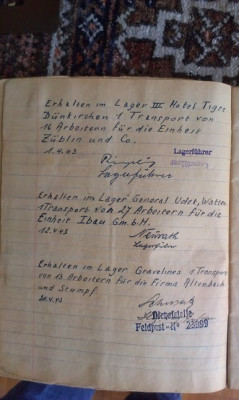 Erhalten im Lager III Hotel Tiger
Dünkirchen 1 Transport von
16 Arbeitern für die Einheit
Züblin und Co.
1.4.43
Lagerführer
Lagerführer
Erhalten im Lager General Udet, Watten
1 Transport von 27 Arbeitern für die
Einheit Ibau G.m.b.H.
12.4.43
Neurath
Lagerführer
Erhalten im Lager Gravelines 1 Transport
von 13 Arbeitern für die Firma Altenbach
und Stumpf
20.4.43
Dienststelle
Feldpost-Nr